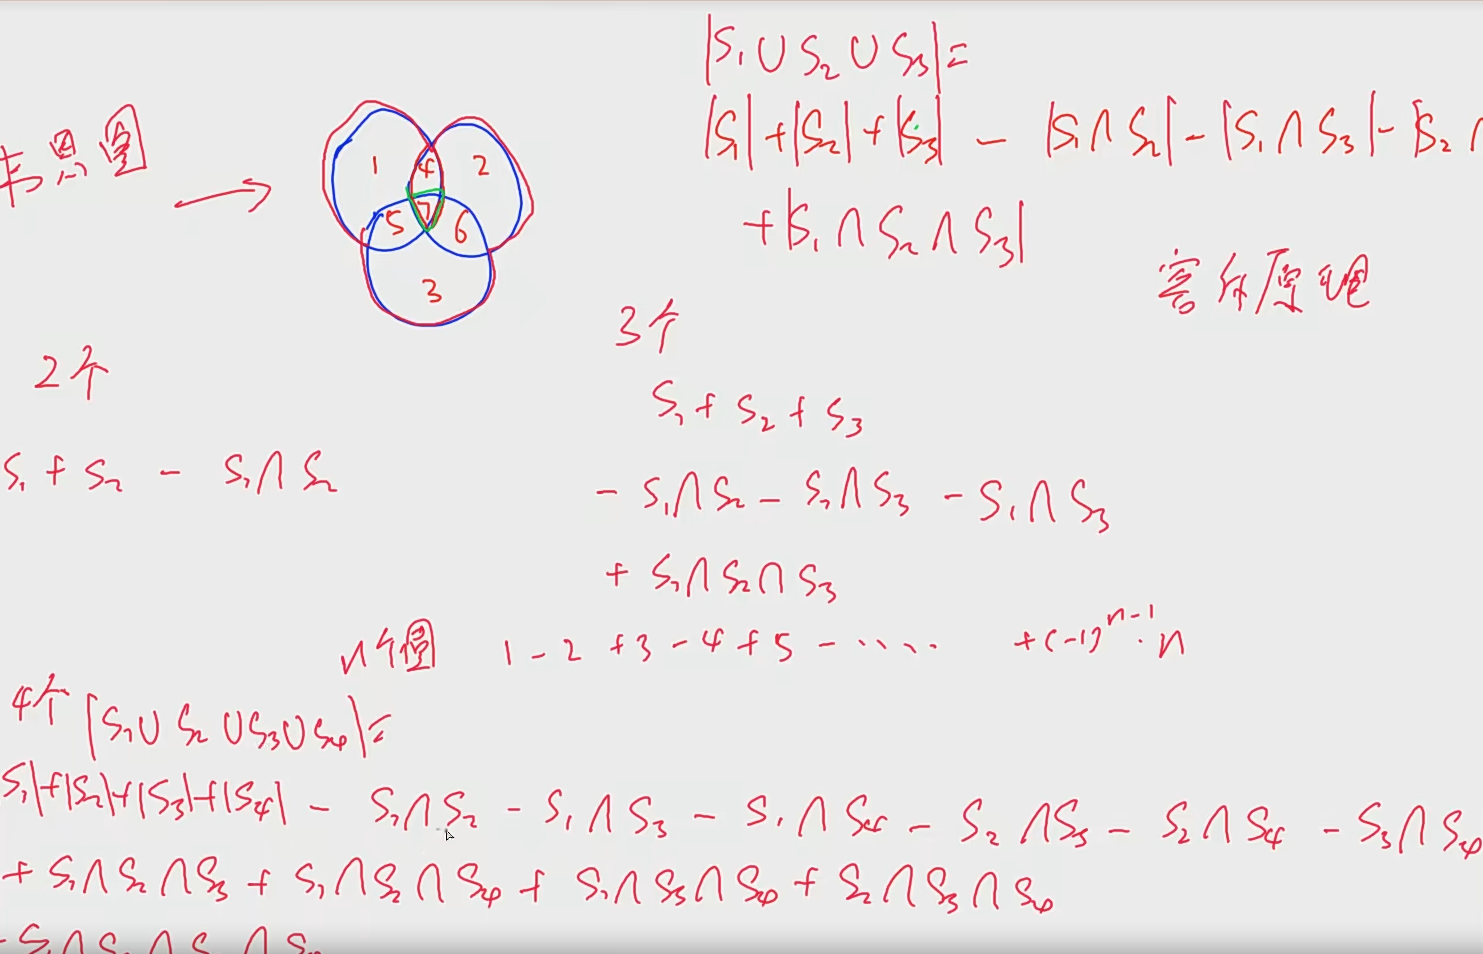 |S₁∪S₂∪S₃|=
|S₁|+|S₂|+|S₃| - |S₁∩S₂|-|S₁∩S₃|-|S₂∩
+|S₁∩S₂∩S₃|
韦恩图
1 4 2
5 7 6
3
容斥原理
2个
S₁+S₂ - S₁∩S₂
3个
S₁+S₂+S₃
- S₁∩S₂ - S₂∩S₃ - S₁∩S₃
+ S₁∩S₂∩S₃
n个圆 1-2+3-4+5-····· +(-1)ⁿ⁻¹·n
4个 |S₁∪S₂∪S₃∪S₄|=
S₁|+|S₂|+|S₃|+|S₄| - S₁∩S₂ - S₁∩S₃ - S₁∩S₄ - S₂∩S₃ - S₂∩S₄ - S₃∩S₄
+ S₁∩S₂∩S₃ + S₁∩S₂∩S₄ + S₁∩S₃∩S₄ + S₂∩S₃∩S₄